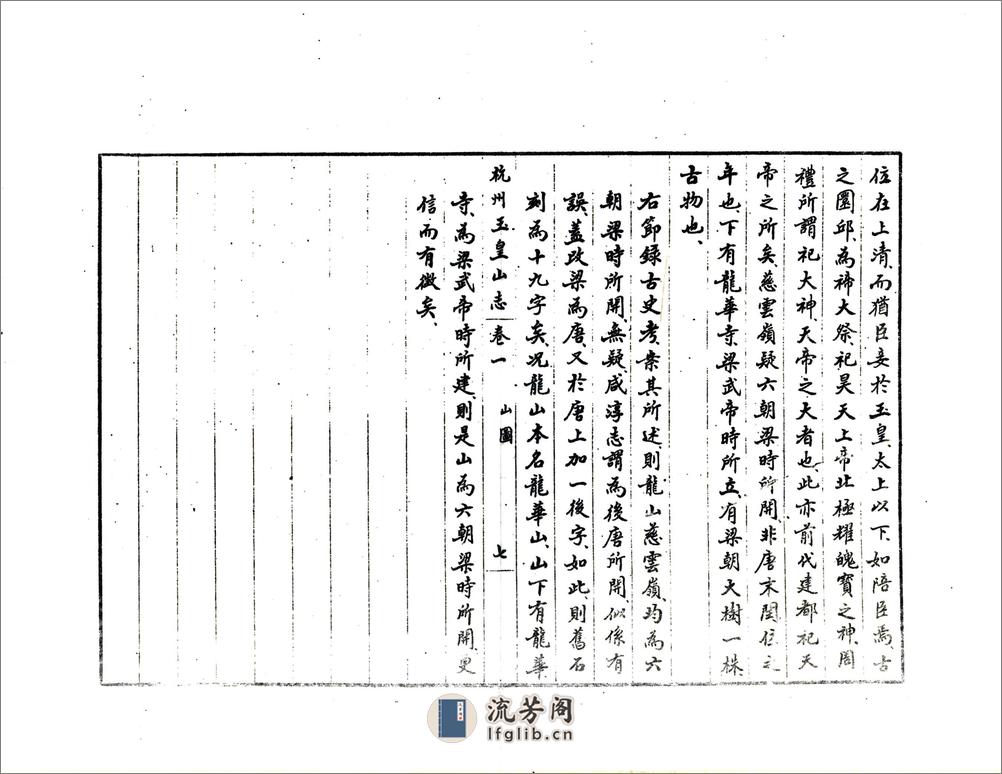 位在上清、而猶臣妾於玉皇、太上以下、如陪臣焉、古
之圜邱、為禘大祭祀昊天上帝北極耀魄寶之神、周
禮所謂祀大神、天帝之大者也、此亦前代建都祀天
帝之所矣、慈雲嶺疑六朝梁時所開、非唐末閏位之
年也、下有龍華寺、梁武帝時所立、有梁朝大樹一株、
古物也、
右節録古史考、案其所述、則龍山慈雲嶺、均為六
朝梁時所開、無疑、咸淳志謂為後唐所開、似係有
誤、蓋改梁為唐、又於唐上加一後字、如此、則舊石
刻為十九字矣、况龍山本名龍華山、山下有龍華
杭州玉皇山志 卷一 山圖 七
寺、為梁武帝時所建、則是山為六朝梁時所開、更
信而有徵矣、
流芳阁
lfglib.cn